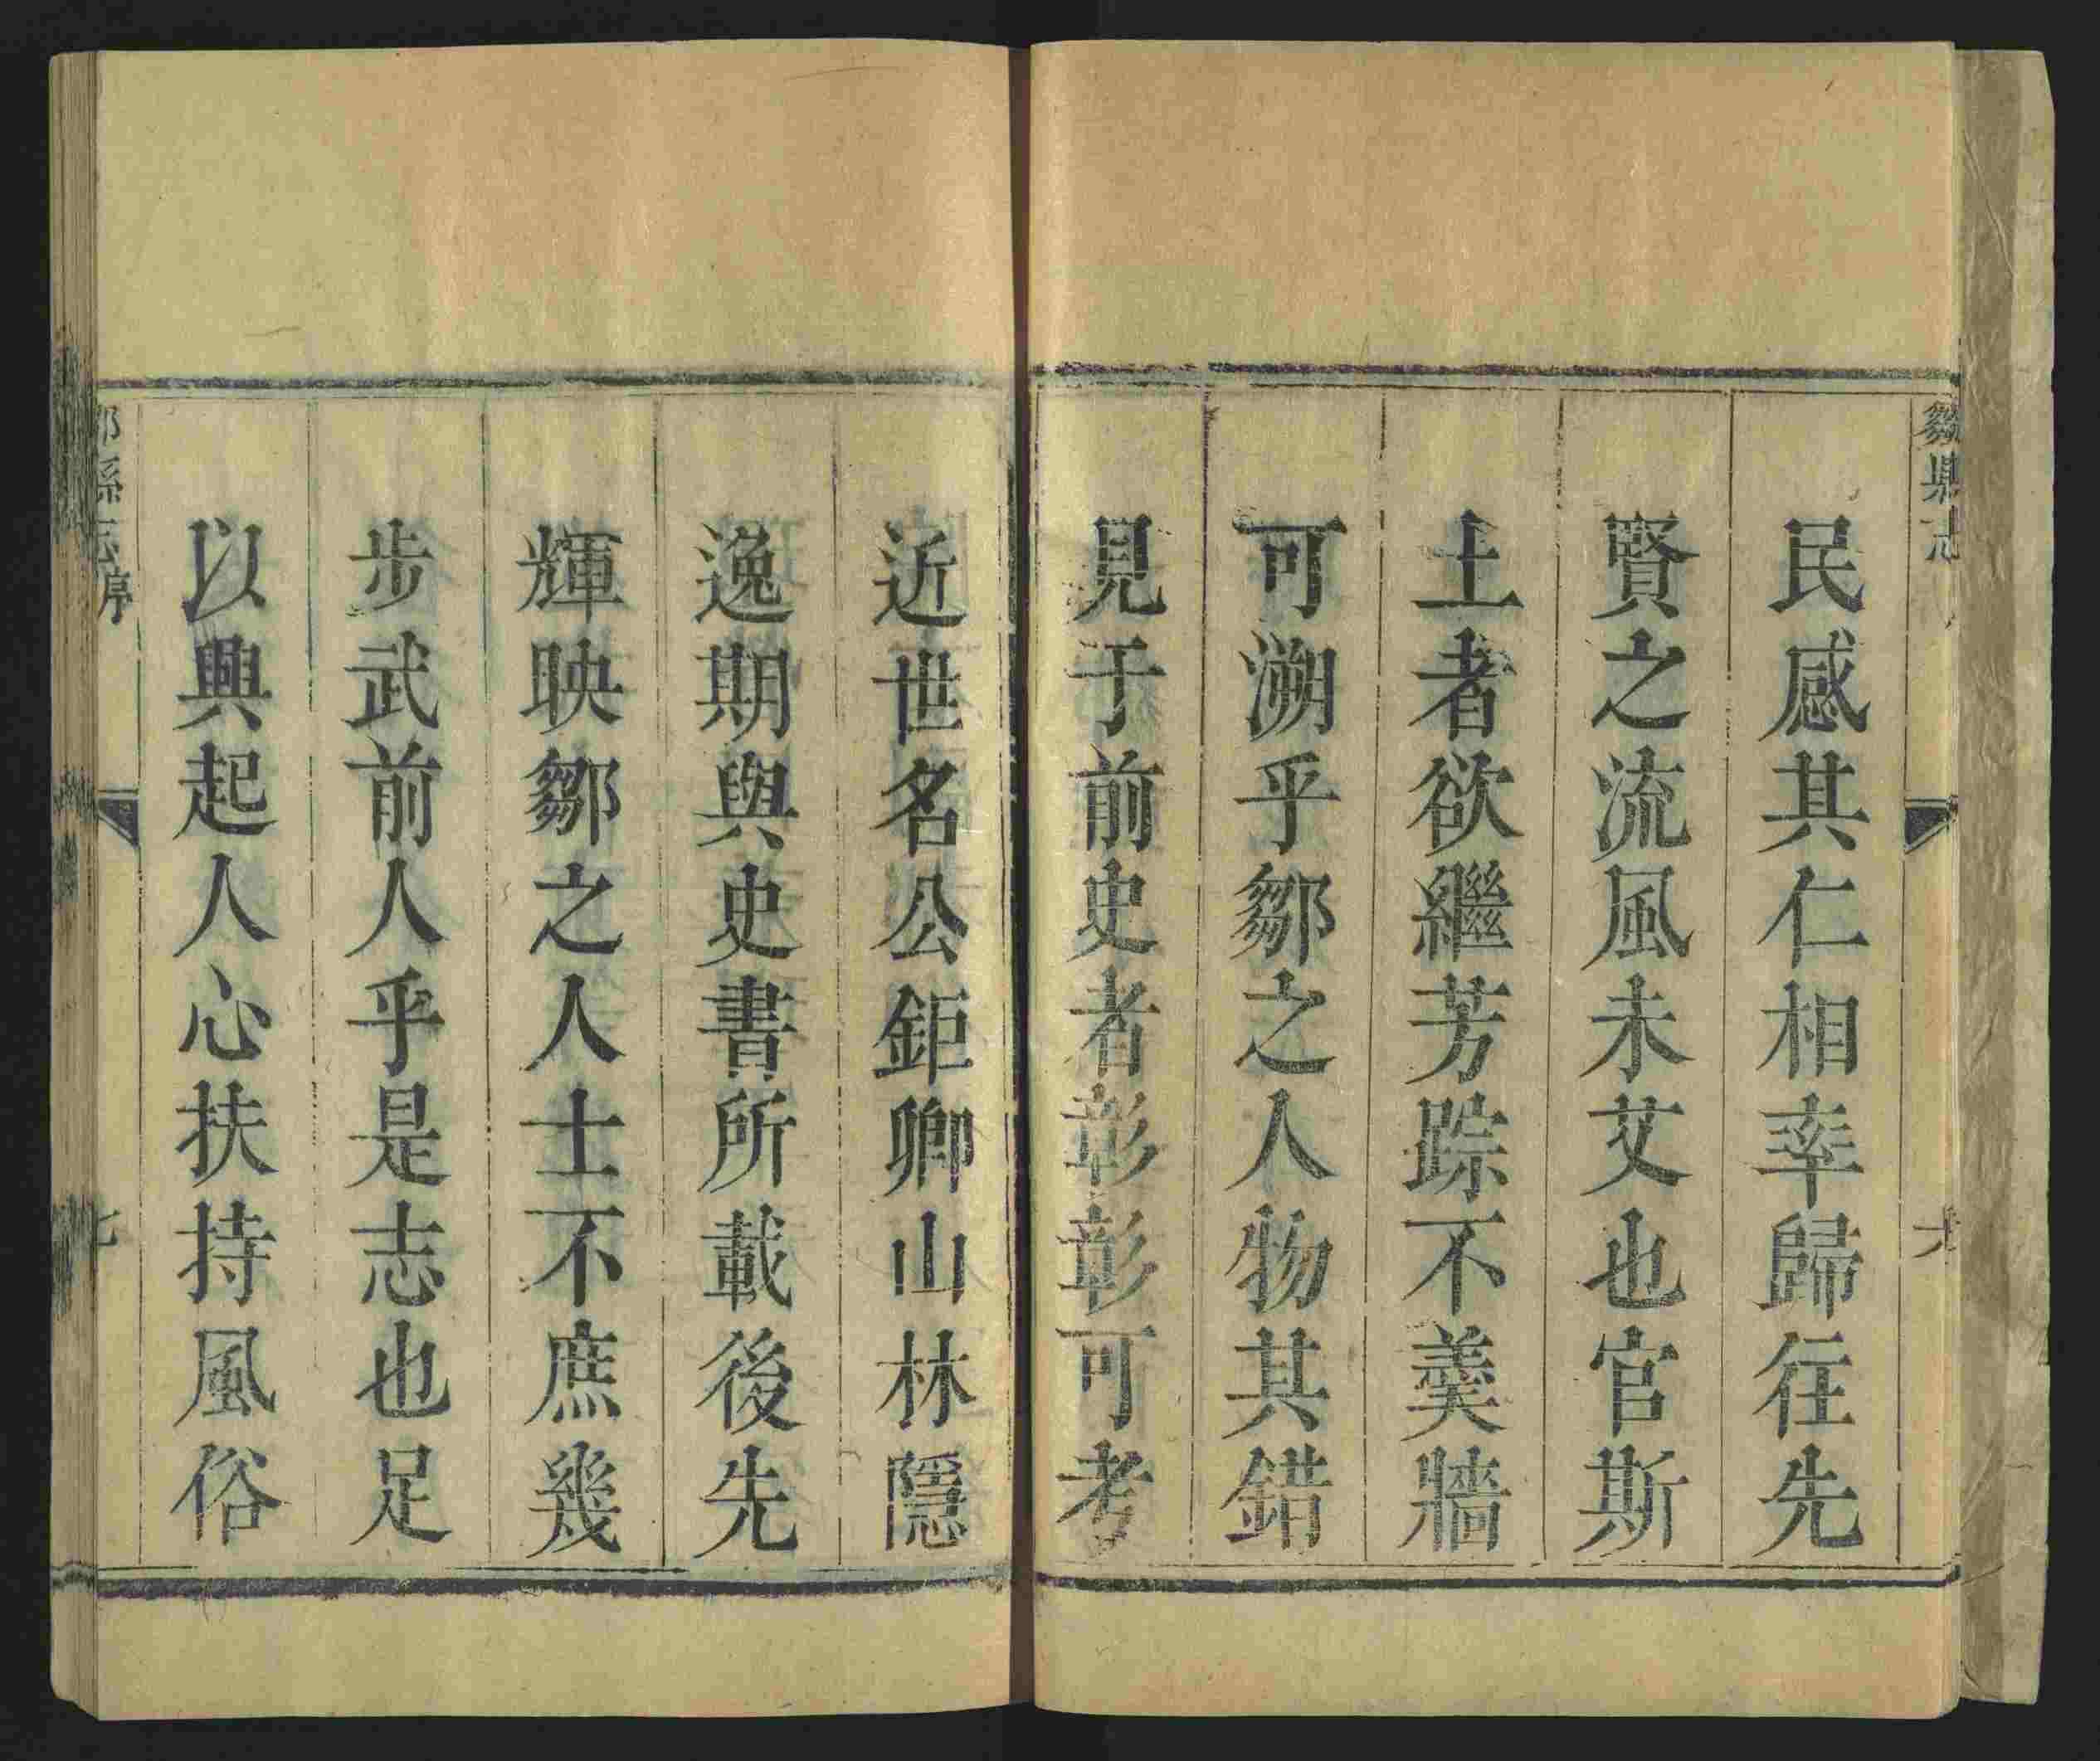 鄒縣志
民感其仁相率歸往先
賢之流風未艾也官斯
土者欲繼芳踪不羹牆
可溯乎鄒之人物其錯
見于前史者彰彰可考
近世名公鉅卿山林隱
逸期與史書所載後先
輝映鄒之人士不庶幾
步武前人乎是志也足
以興起人心扶持風俗
鄒縣志序
七